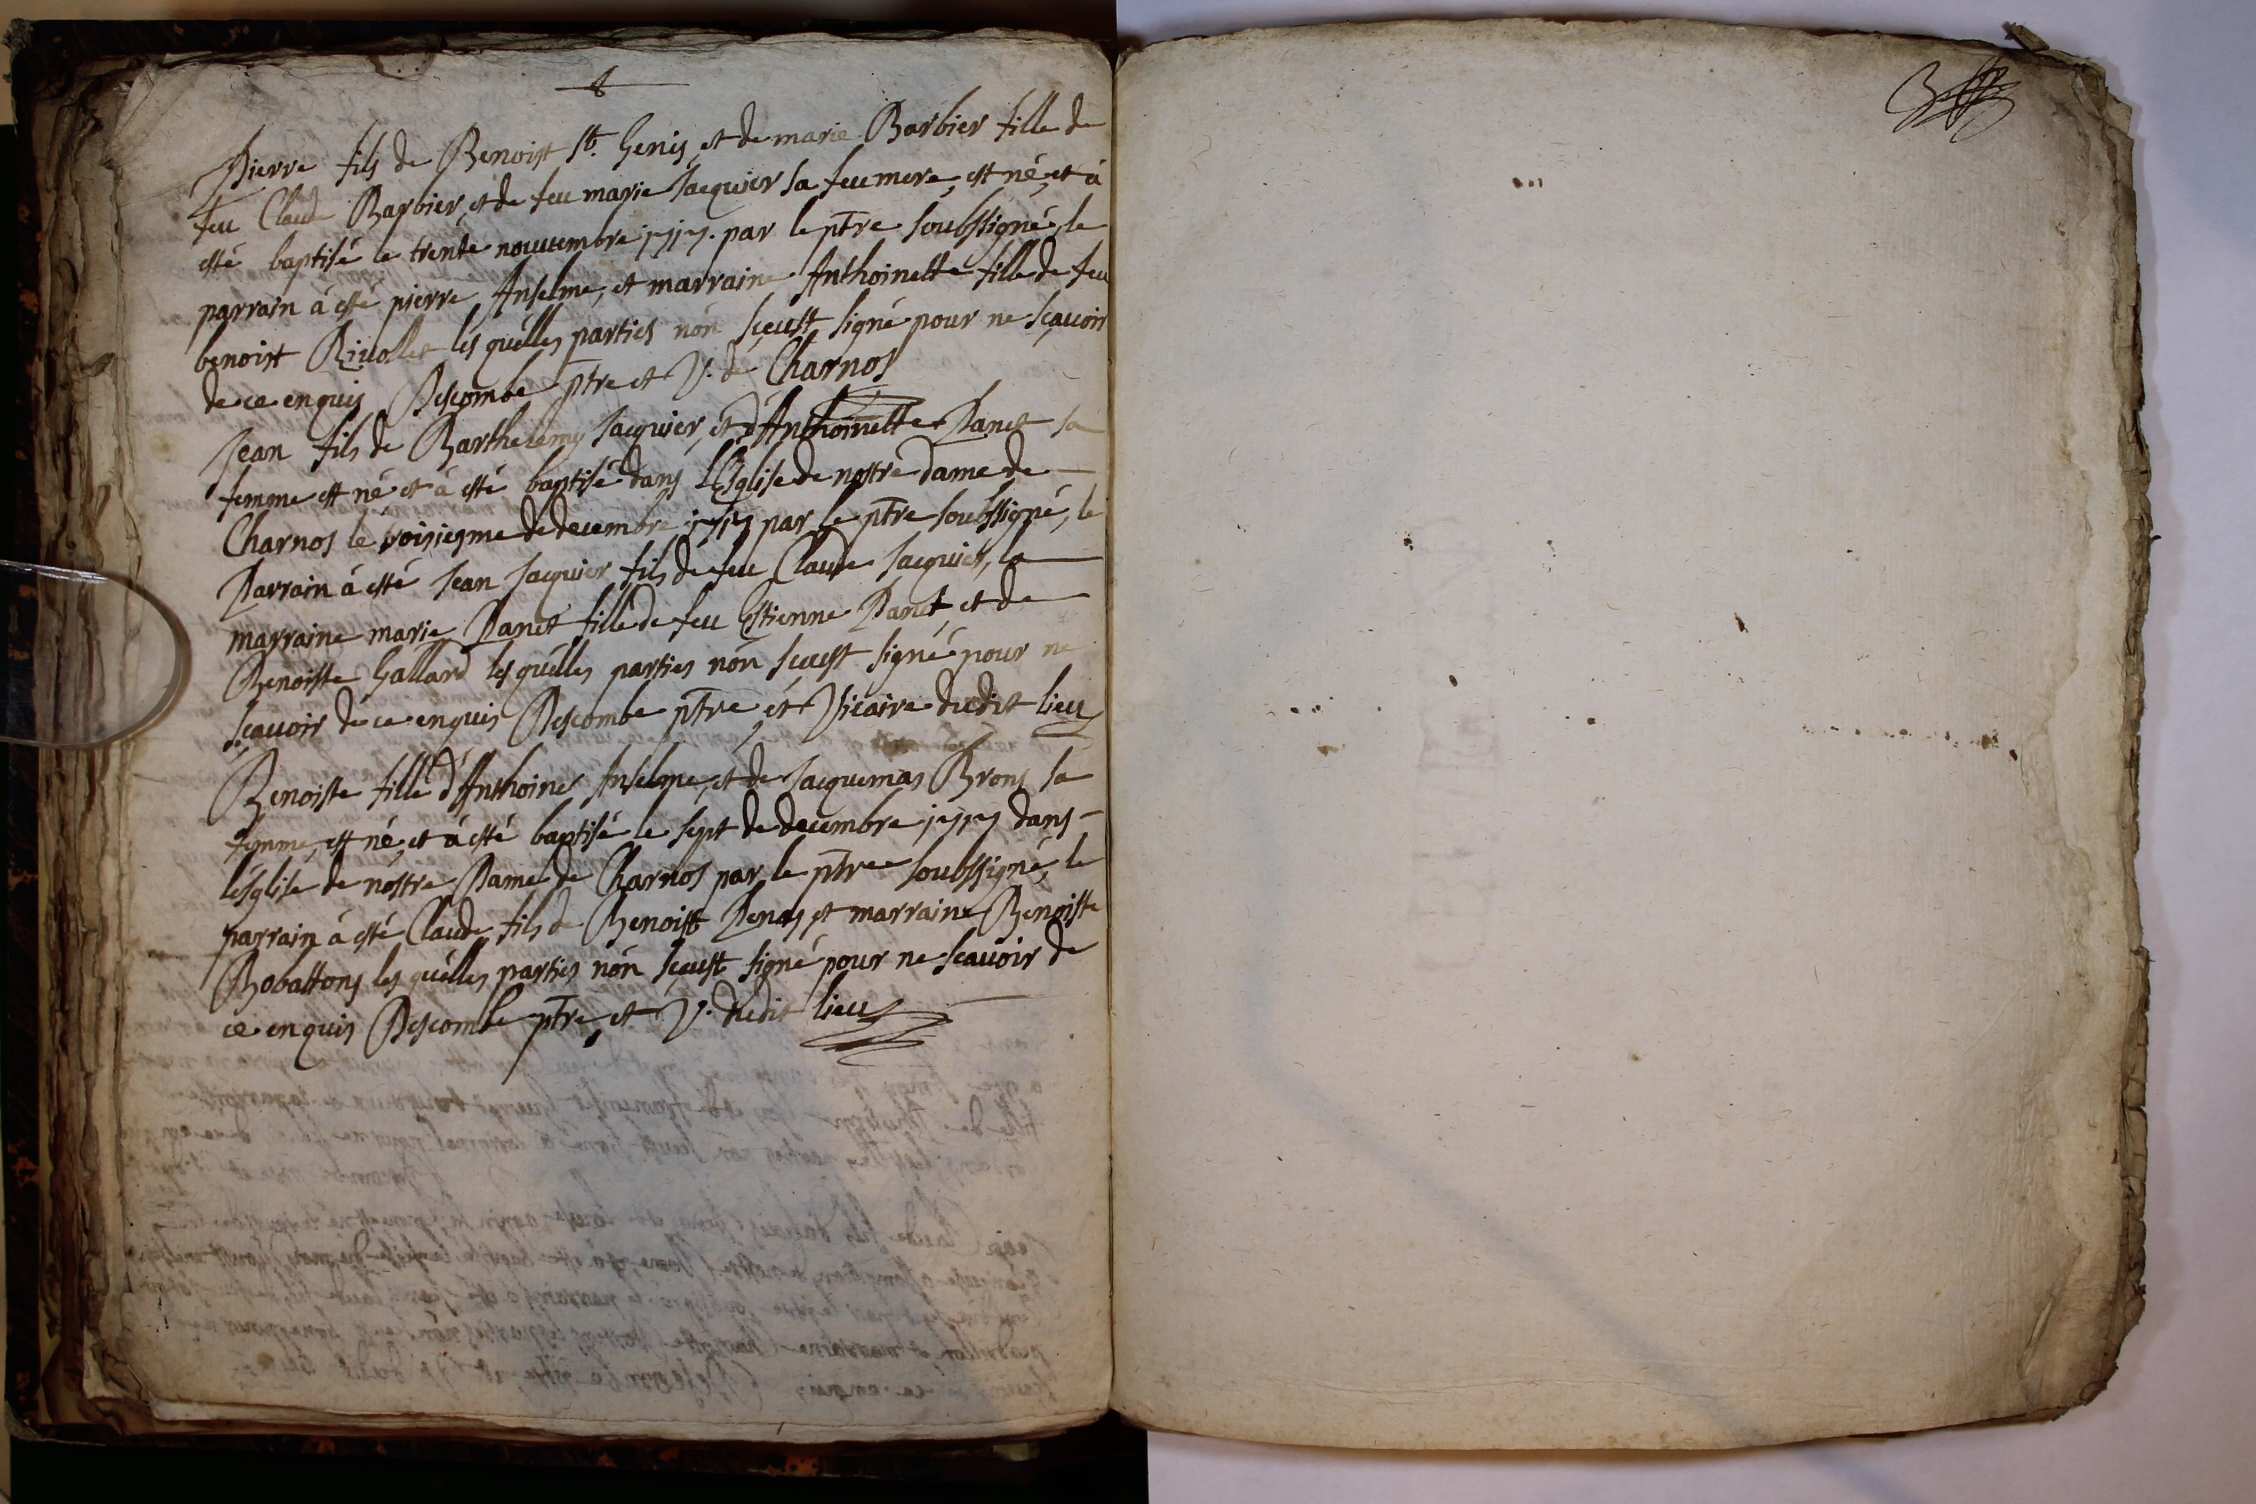 Pierre fils de Benoist St. Genis, et de marie Barbier fille de
feu Claude Barbier, et de feu marie Jacquier sa feu mere, est né, et à
esté baptisé le trente nouuembre par le ptre soubssigné, le
parrain à esté pierre Anselme, et marraine Anthoinette fille de feu
benoist Riuollet les quelles parties nón sceust signé pour ne sçauoir
de ce enquis Descombe ptre et V. de Charnos
Jean fils de Barthelemy Jacquier, et d'Anthoinette Panet sa
femme est né et à esté baptisé dans L'Esglise de nostre dame de
Charnos le troisiesme de decembre par le ptre soubssigné, le
Parrain à esté Jean Jacquier fils de feu Claude Jacquier, la
marraine marie Panet fille de feu Estienne Panet, et de
Benoiste Gallard les quelles parties nón sceust signé pour ne
scauoir de ce enquis Descombe ptre et Vicaire dudit lieu
Benoiste fille d'Anthoine Anselme, et de Jacquemas Brons sa
femme, est né, et à esté baptisé le sept de decembre dans
lésglise de nóstre Dame de Charnos par le ptre soubssigné, le
parrain à esté Claude fils de Benoist et marraine Benoiste
les quelles parties nón sceust signé pour ne scauoir de
ce enquis Descombe ptre, et V. dudit lieu